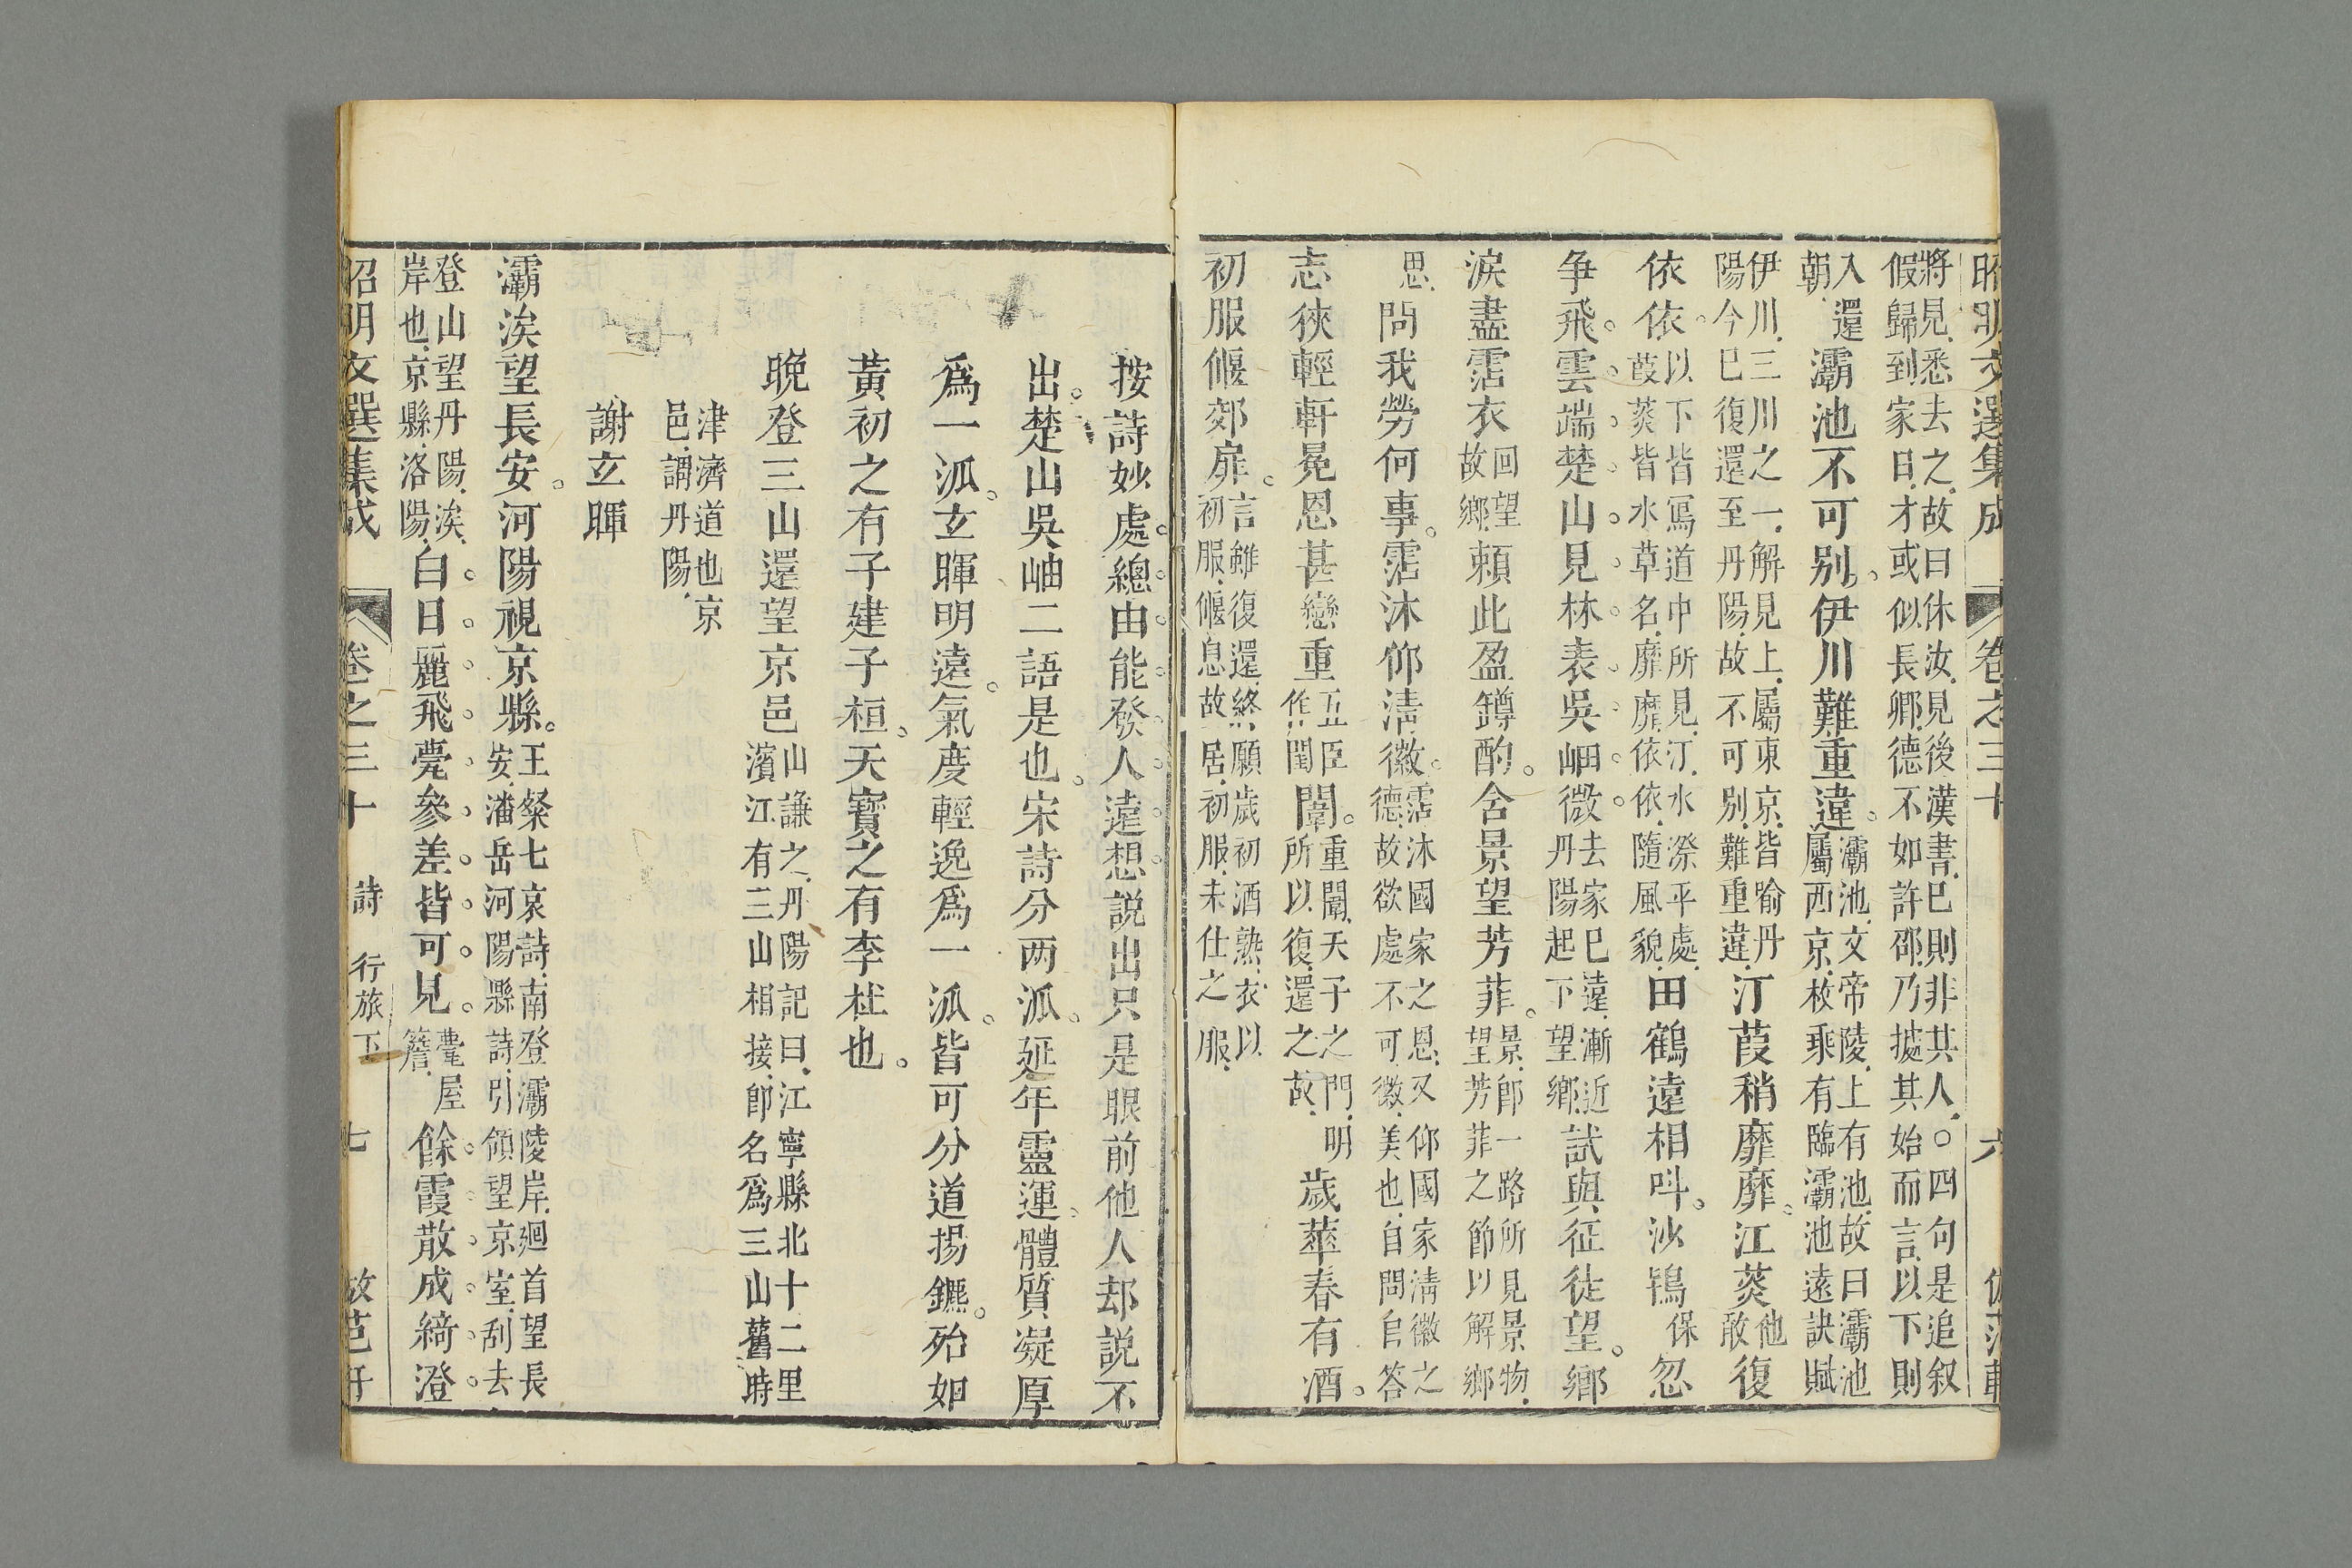 昭明文選集成 卷之三十 六
將見、悉去之、故曰休汝、見後漢書、巳則非其人、○四句是追叙
假歸到家日、才或似長卿、德不如許邵、乃據其始而言、以下則
入朝、還灞池不可別。伊川難重違。灞池、文帝陵、上有池、故曰灞池
屬西京、枚乘有臨灞池遠訣賦
伊川、三川之一、解見上、屬東京、皆喻丹
陽今巳復還至丹陽、故不可別、難重違、汀葭稍靡靡。江菼他敢復
依依。以下皆寫道中所見、汀、水漈平處、
葭菼皆水草名、靡靡、依依、隨風貌、田鶴遠相呌。沙鴇保忽
争飛。雲端楚山見。林表吳岫微。去家巳遠、漸近
丹陽起下望鄉、試與征徒望。鄉
淚盡霑衣回望故鄉、賴此盈罇酌。含景望芳菲。景、卽一路所見景物、
望芳菲之節以解鄉
思、問我勞何事。霑沐仰淸徽。霑沐國家之恩、又仰國家淸徽之
德、故欲處不可、徽、美也、自問自答
志狹輕軒冕恩甚戀重五臣作閨闈。重闈、天子之門、明
所以復還之故、歲華春有酒。
初服偃郊扉。言雖復還、終願歲初酒熟、衣以
初服、偃息故居、初服、未仕之服、
按詩妙處。總由能發人遠想說出只是眼前他人却說不
出。楚山吳岫二語是也。宋詩分两派。延年靈運。體質凝厚
爲一派。玄暉明遠。氣度輕逸爲一派。皆可分道揚鑣。殆如
黃初之有子建子桓。天寶之有李杜也。
晚登三山還望京邑山謙之、丹陽記曰、江寧縣北十二里
濱江有三山相接、卽名爲三山舊時
津濟道也京
邑、謂丹陽、
謝玄暉
灞涘望長安。河陽視京縣。王粲七哀詩、南登灞陵岸、廻首望長
安、潘岳河陽縣詩、引領望京室、刮去
登山望丹陽、涘、
岸也、京縣、洛陽、白日麗飛甍。參差皆可見。甍、屋簷、餘霞散成綺澄
昭明文選集成 卷之三十 詩 行旅下 七